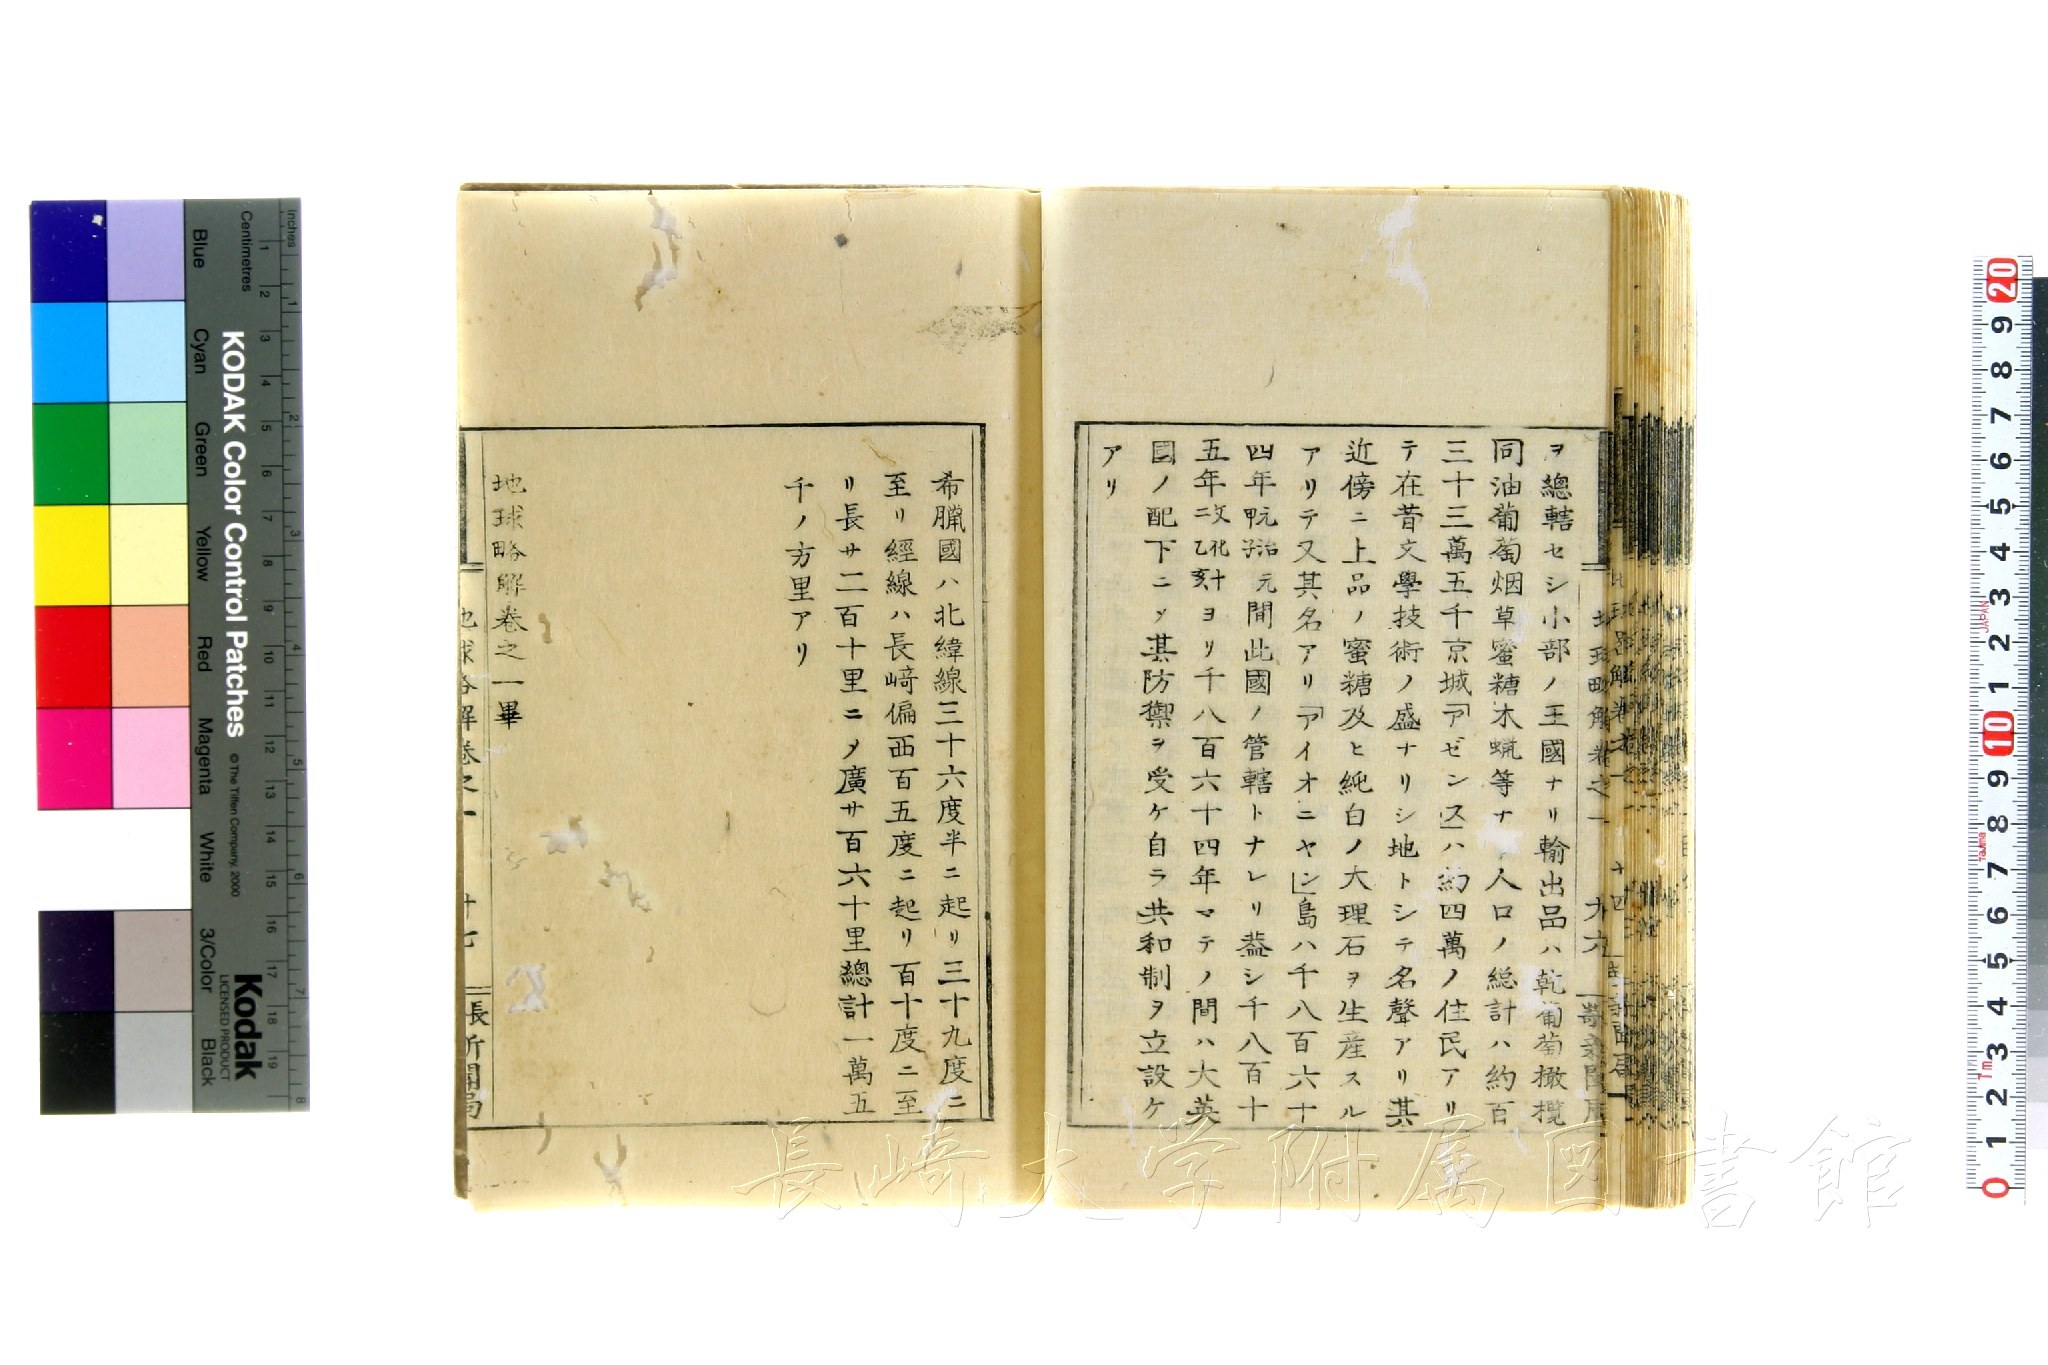 ヲ總轄セシ小部ノ王國ナリ輸出品ハ乾葡萄橄欖
同油葡萄烟草蜜糖木蝋等ナ 人口ノ総計ハ約百
三十三萬五千京城「アゼンス」ハ約四萬ノ住民アリ
テ在昔文學技術ノ盛ナリシ地トシテ名聲アリ其
近傍ニ上品ノ蜜糖及ヒ純白ノ大理石ヲ生産スル
アリテ又其名アリ「アイオニヤン」島ハ千八百六十
四年元治元甲子間此國ノ管轄トナレリ蓋シ千八百十
五年文化十二乙亥ヨリ千八百六十四年マテノ間ハ大英
國ノ配下ニメ其防禦ヲ受ケ自ラ共和制ヲ立設ケ
アリ
希臘國ハ北緯線三十六度半ニ起リ三十九度ニ
至リ經線ハ長﨑偏西百五度ニ起リ百十度ニ至
リ長サ二百十里ニメ廣サ百六十里總計一萬五
千ノ方里アリ
地球略解卷之一畢
地球略解卷之一 十七 長 新聞局
長崎大学附属図書館
KODAK Color Control Patches
© The Tiffen Company, 2000
Kodak
LICENSED PRODUCT
Inches
Centimetres
Blue
Cyan
Green
Yellow
Red
Magenta
White
3/Color
Black